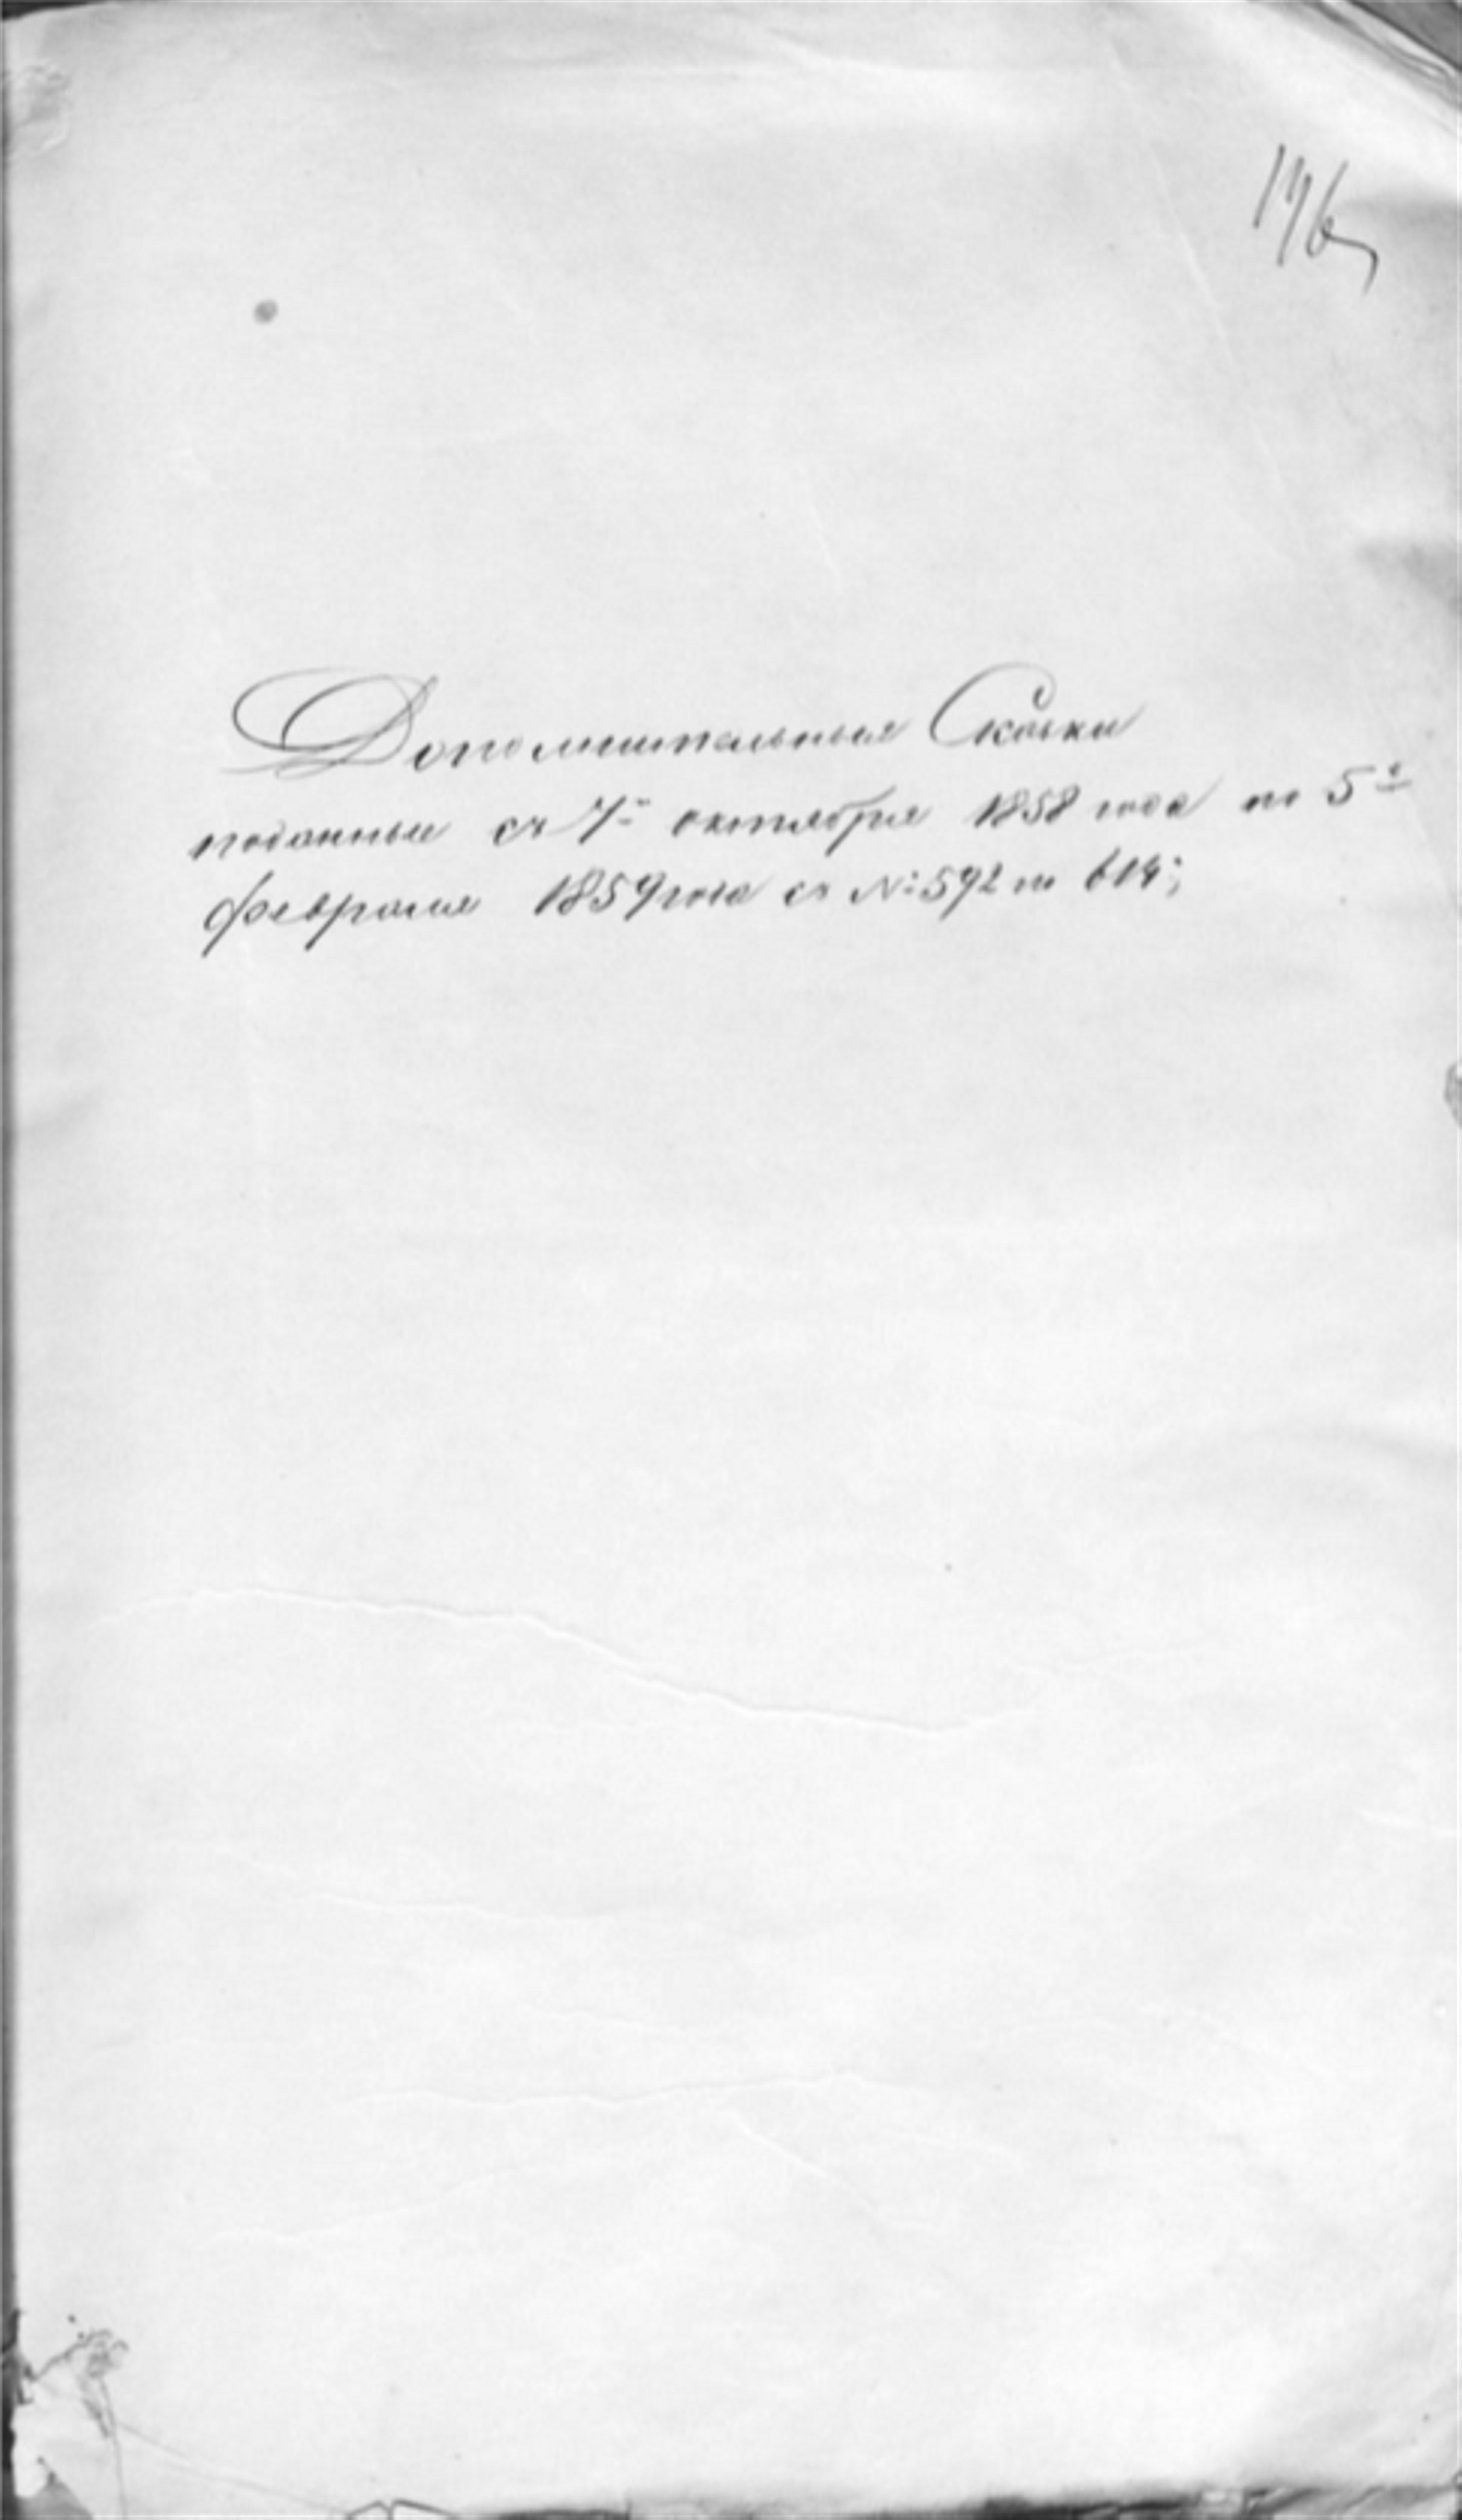 176
Дополнительныя Сказки
поданныя съ 7го октября 1858 года по 5е
февраля 1859 года съ № 592 по 614;